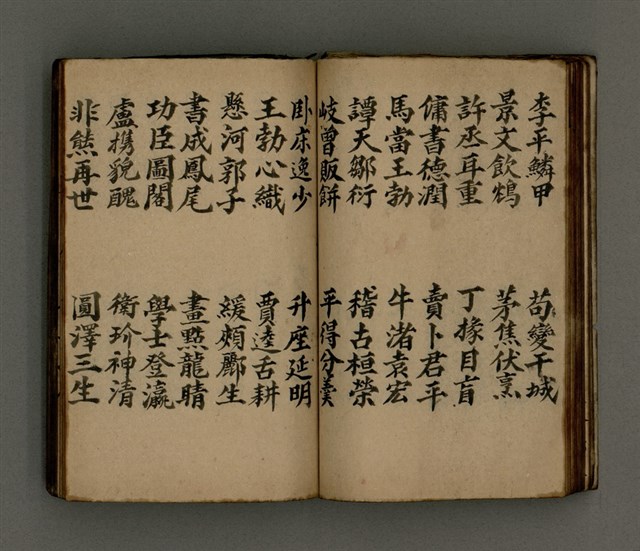 李平鱗甲 苟變干城
景文飲鴆 茅焦伏烹
許丞耳重 丁掾目盲
傭書德潤 賣卜君平
馬當王勃 牛渚袁宏
譚天鄒衍 稽古桓榮
岐曾販餅 平得分羹
卧床逸少 升座延明
王勃心織 賈逵舌耕
懸河郭子 緩頰酈生
書成鳳尾 畫㸃龍睛
功臣圖閣 學士登瀛
盧携貌醜 衛玠神清
非熊再世 圓澤三生